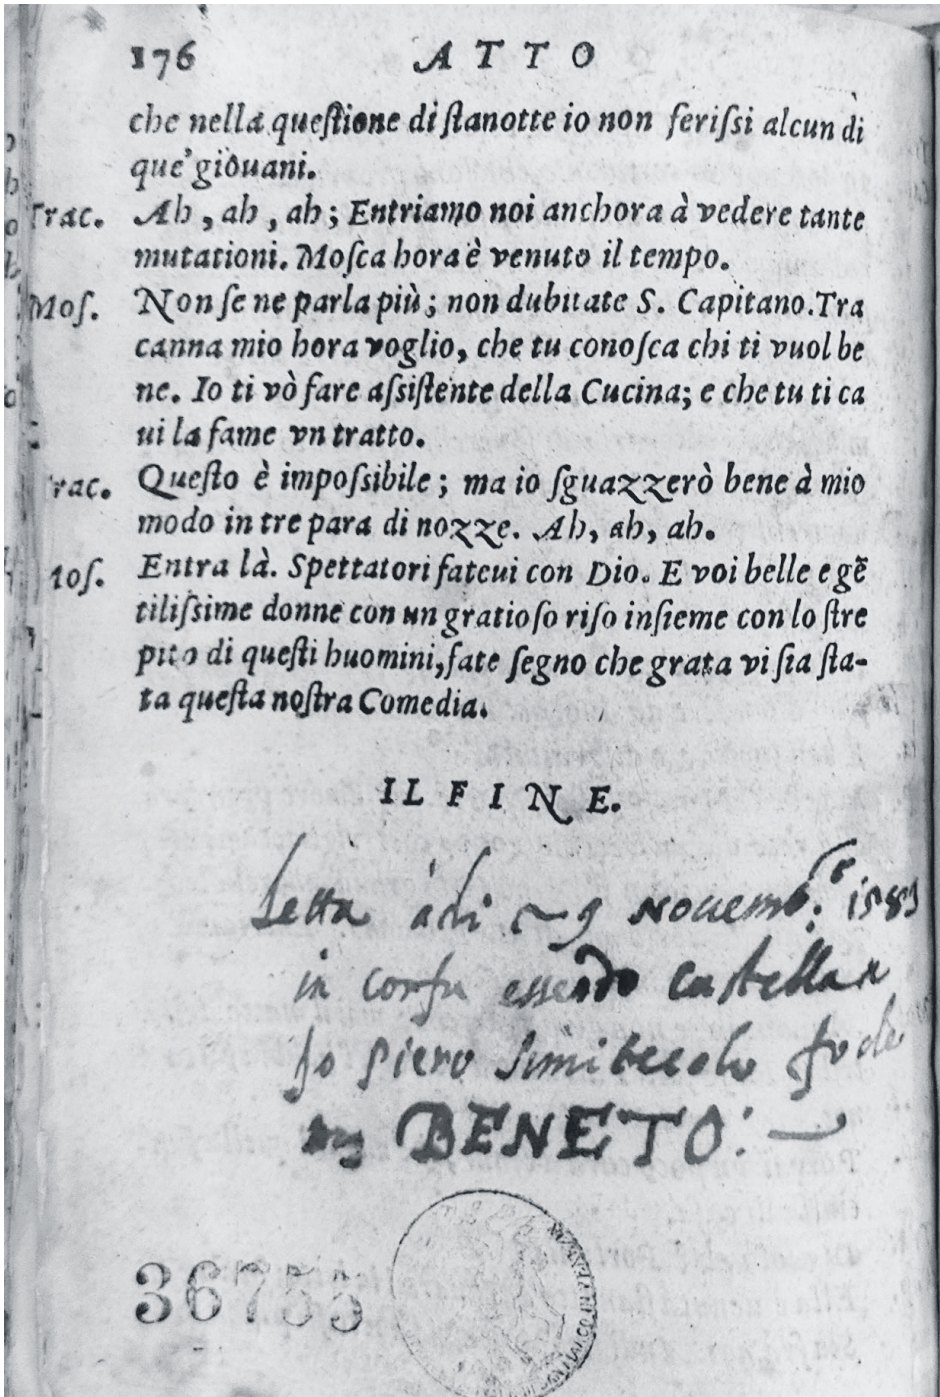 176 ATTO
che nella queſtione di ſtanotte io non feriſſi alcun di
que' giouani.
Trac. Ah, ah, ah; Entriamo noi anchora à vedere tante
mutationi. Moſca hora è venuto il tempo.
Moſ. Non ſe ne parla più; non dubitate S. Capitano. Tra
canna mio hora voglio, che tu conoſca chi ti vuol be
ne. Io ti vò fare aſſiſtente della Cucina; e che tu ti ca
ui la fame vn tratto.
rac. Queſto è impoſsibile; ma io ſguazzerò bene à mio
modo in tre para di nozze. Ah, ah, ah.
ioſ. Entra là. Spettatori fateui con Dio. E voi belle e gẽ
tiliſsime donne con un gratioſo riſo inſieme con lo ſtre
pito di queſti huomini, fate ſegno che grata vi ſia ſta-
ta queſta noſtra Comedia.
IL FINE.
Letta adi 9 Nouemb. 1583
in corfu essendo Castella
Piero Simitecolo fo de
BENETO
36755